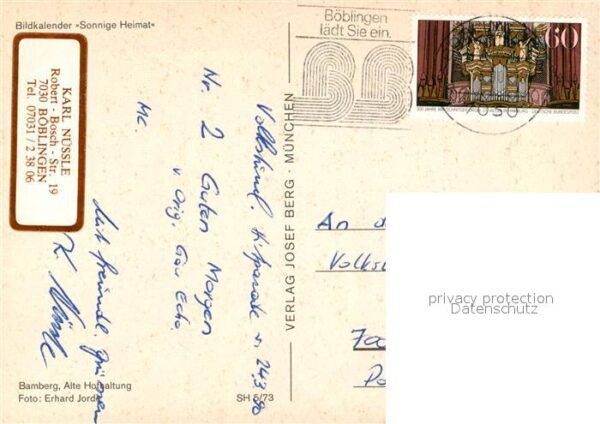 Bildkalender »Sonnige Heimat«
KARL NÜSSLE
Robert - Bosch - Str. 19
7030 BÖBLINGEN
Tel. 07031 / 2 38 06
Volkstüml. Hitparade v. 24.3.90
Nr. 2 Guten Morgen
v. Orig. Gäu Echo
MC.
Mit freundl. Grüssen
K. Nüssle
Bamberg, Alte Hofhaltung
Foto: Erhard Jordi
SH 5/73
VERLAG JOSEF BERG · MÜNCHEN
Böblingen
lädt Sie ein.
BB
60
DEUTSCHE BUNDESPOST
An d
Volks
700
Po
privacy protection
Datenschutz